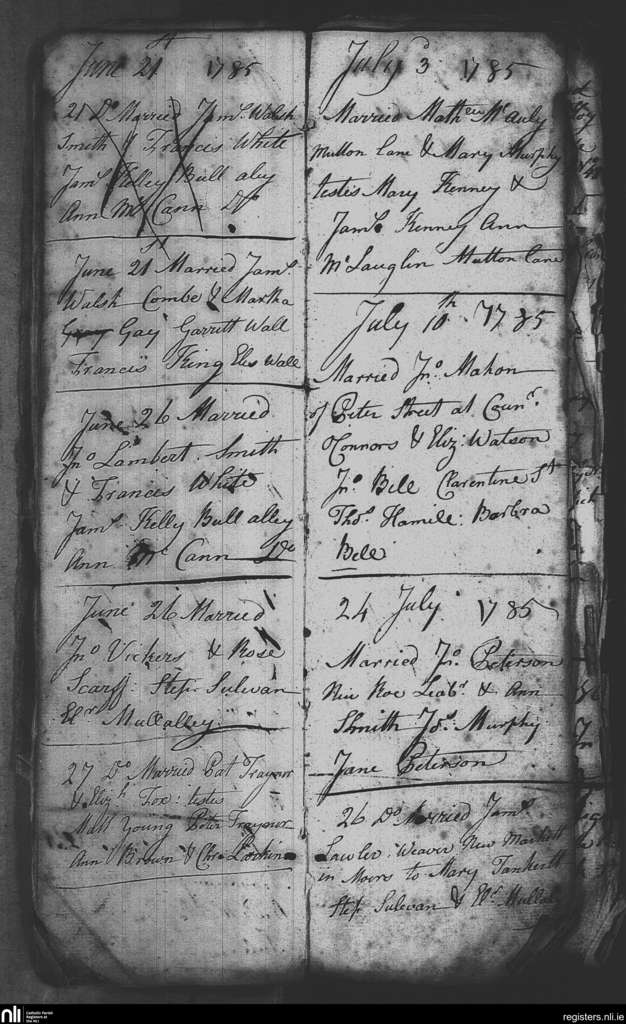 June 21st 1785
21 Do Married Jams. Walsh
Smith & Francis White
Jams. Kelley Bull aley
Ann Mc Cann Do
June 21st Married Jams.
Walsh Combe & Martha
Gay Garrett Wall
Francis King Elis Wall
June 26 Married
Jno Lambert Smith
& Francis White
Jams. Kelly Bull alley
Ann Mc Cann Do
June 26 Married
Jno Vickers & Rose
Scarff: Step: Sulevan
Elr Mullalley
27 Do Married Pat Traynor
& Elizh Fox: testes
Matt Young Peter Traynor
Ann Brown & Chr.
July 3d 1785
Married Mathew McAuly
Mutton Lane & Mary Murphy
testis Mary Kenney &
Jams. Kenney Ann
McLauglin Mutton Lane
July 10th 1785
Married Jno. Mahon
of Peter Street at Counr.
OConnors & Eliz: Watson
Jno. Bell Clarentine St
Thos. Hamill: Barbra
Bell
24 July 1785
Married Jo. Peterson
New Roe Labr. & Ann
Shmith Jos. Murphy
Jane Peterson
26 Do Married Jams.
Lawler: Weaver New Markett
in Moore to Mary
Step Sulevan &
nli
Catholic Parish
Registers at
the NLI
registers.nli.ie